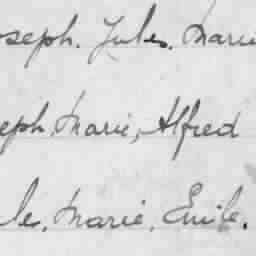 oseph. Jules. Marie
eph, Marie, Alfred
le, Marie, Emile.